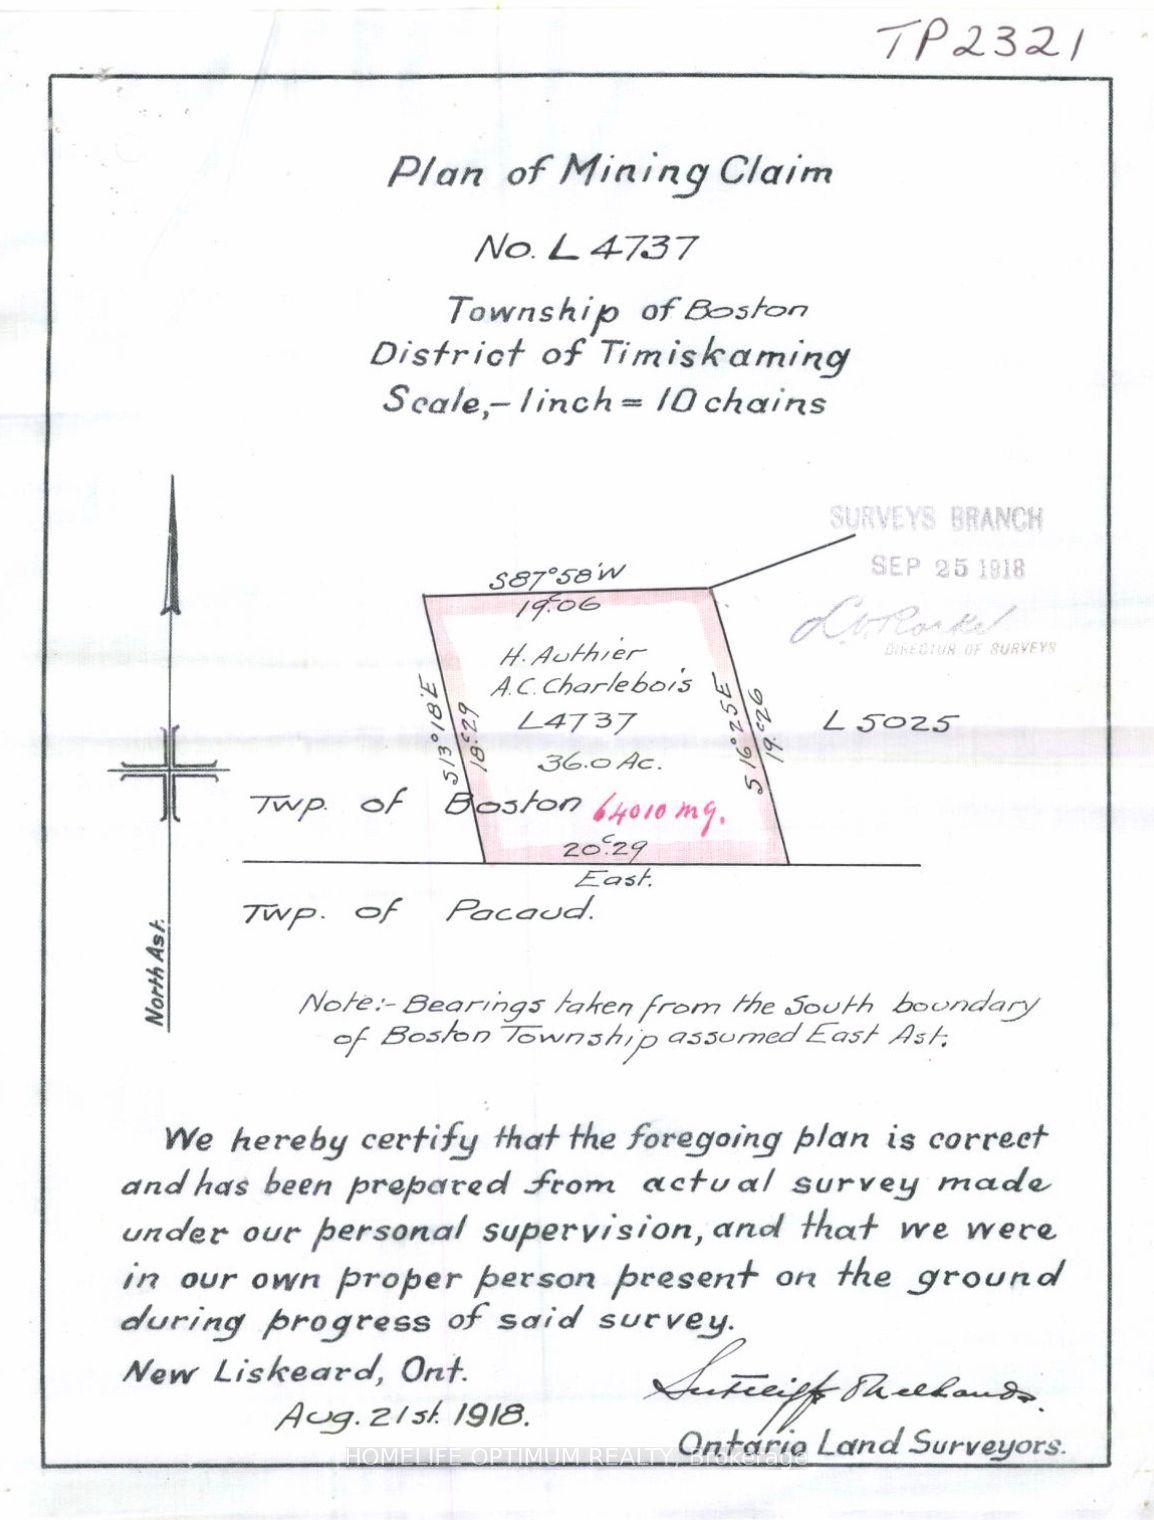 TP2321
Plan of Mining Claim
No. L 4737
Township of Boston
District of Timiskaming
Scale,- 1 inch = 10 chains
SURVEYS BRANCH
SEP 25 1918
DIRECTOR OF SURVEYS
S87°58'W
19.c06
H. Authier
A.C. Charlebois
L4737
36.0 Ac.
S13°18'E
18.c29
S 16°25'E
19.c26
L 5025
Twp. of Boston
64010 mg.
20.c29
East.
Twp. of Pacaud.
North Ast.
Note:- Bearings taken from the South boundary
of Boston Township assumed East Ast.
We hereby certify that the foregoing plan is correct
and has been prepared from actual survey made
under our personal supervision, and that we were
in our own proper person present on the ground
during progress of said survey.
New Liskeard, Ont.
Aug. 21st. 1918.
Sutcliffe
Ontario Land Surveyors.
HOMELIFE OPTIMUM REALTY, Brokerage